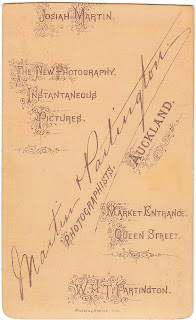 Josiah Martin.
The New Photography.
Instantaneous
Pictures.
Martin & Partington
Photographists.
Auckland.
Market Entrance.
Queen Street.
W.H.T. Partington.